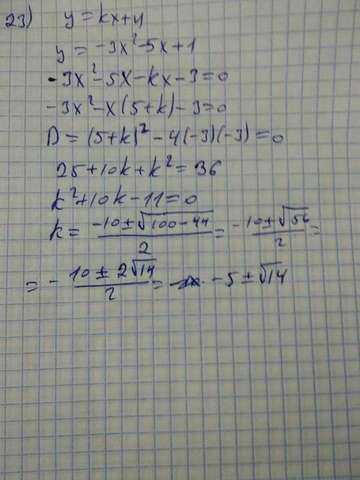 23) y = kx+4
y = -3x²-5x+1
-3x²-5x-kx-3=0
-3x²-x(5+k)-3=0
D = (5+k)²-4(-3)(-3)=0
25+10k+k²=36
k²+10k-11=0
k = (-10±√(100-44))/2 = -(10±√56)/2 =
= -(10±2√14)/2 = -5±√14